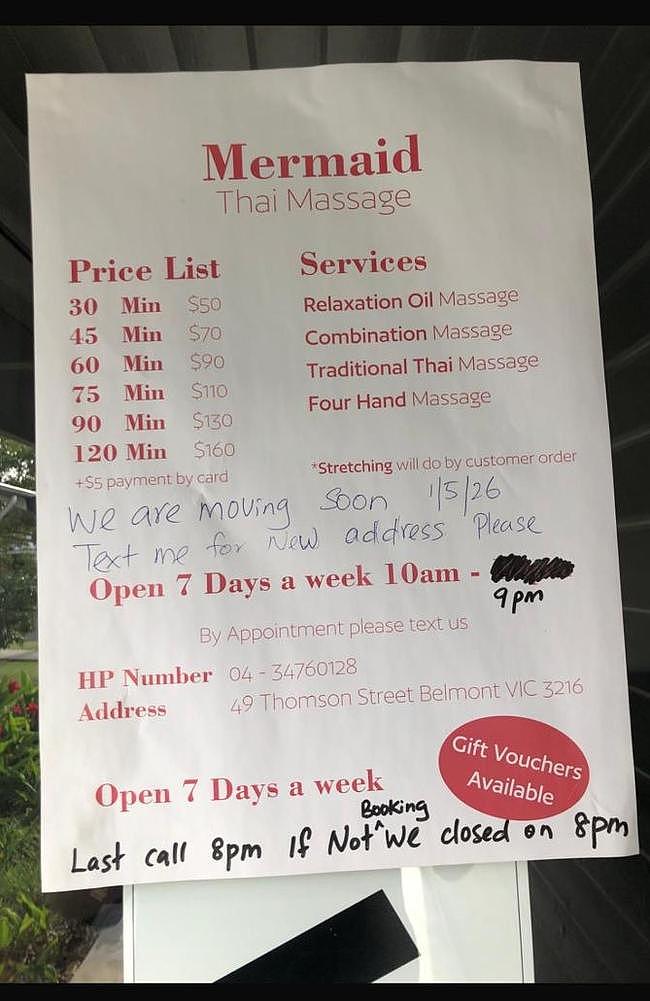 Mermaid
Thai Massage
Price List
30 Min $50
45 Min $70
60 Min $90
75 Min $110
90 Min $130
120 Min $160
+$5 payment by card
Services
Relaxation Oil Massage
Combination Massage
Traditional Thai Massage
Four Hand Massage
*Stretching will do by customer order
We are moving soon 1/5/26
Text me for New address Please
Open 7 Days a week 10am -
9pm
By Appointment please text us
HP Number 04 - 34760128
Address 49 Thomson Street Belmont VIC 3216
Gift Vouchers
Available
Open 7 Days a week
Booking
Last call 8pm If Not ^ We closed on 8pm